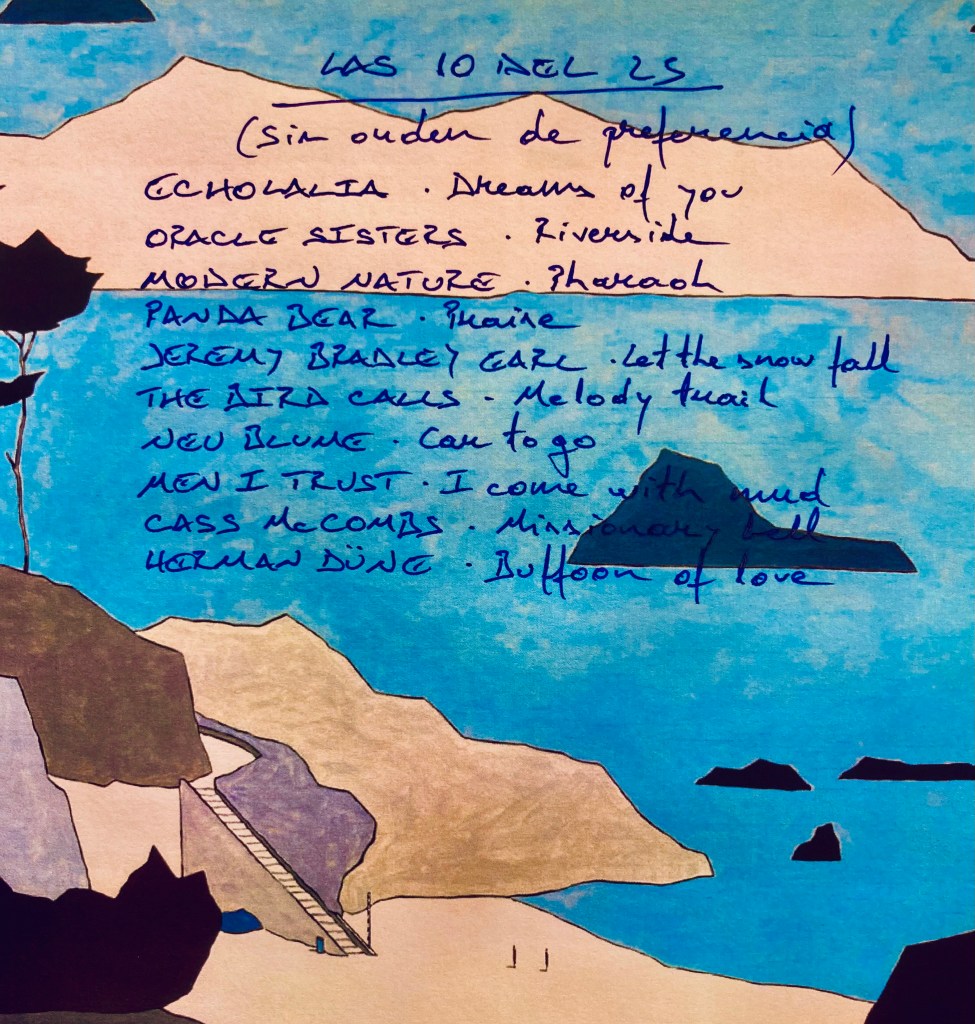 LAS 10 DEL 25
(sin orden de preferencia)
ECHOLALIA . Dreams of you
ORACLE SISTERS . Riverside
MODERN NATURE . Pharaoh
PANDA BEAR . Praise
JEREMY BRADLEY EARL . Let the snow fall
THE BIRD CALLS . Melody trail
NEU BLUME . Car to go
MEN I TRUST . I come with mud
CASS McCOMBS . Missionary bell
HERMAN DÜNE . Buffoon of love